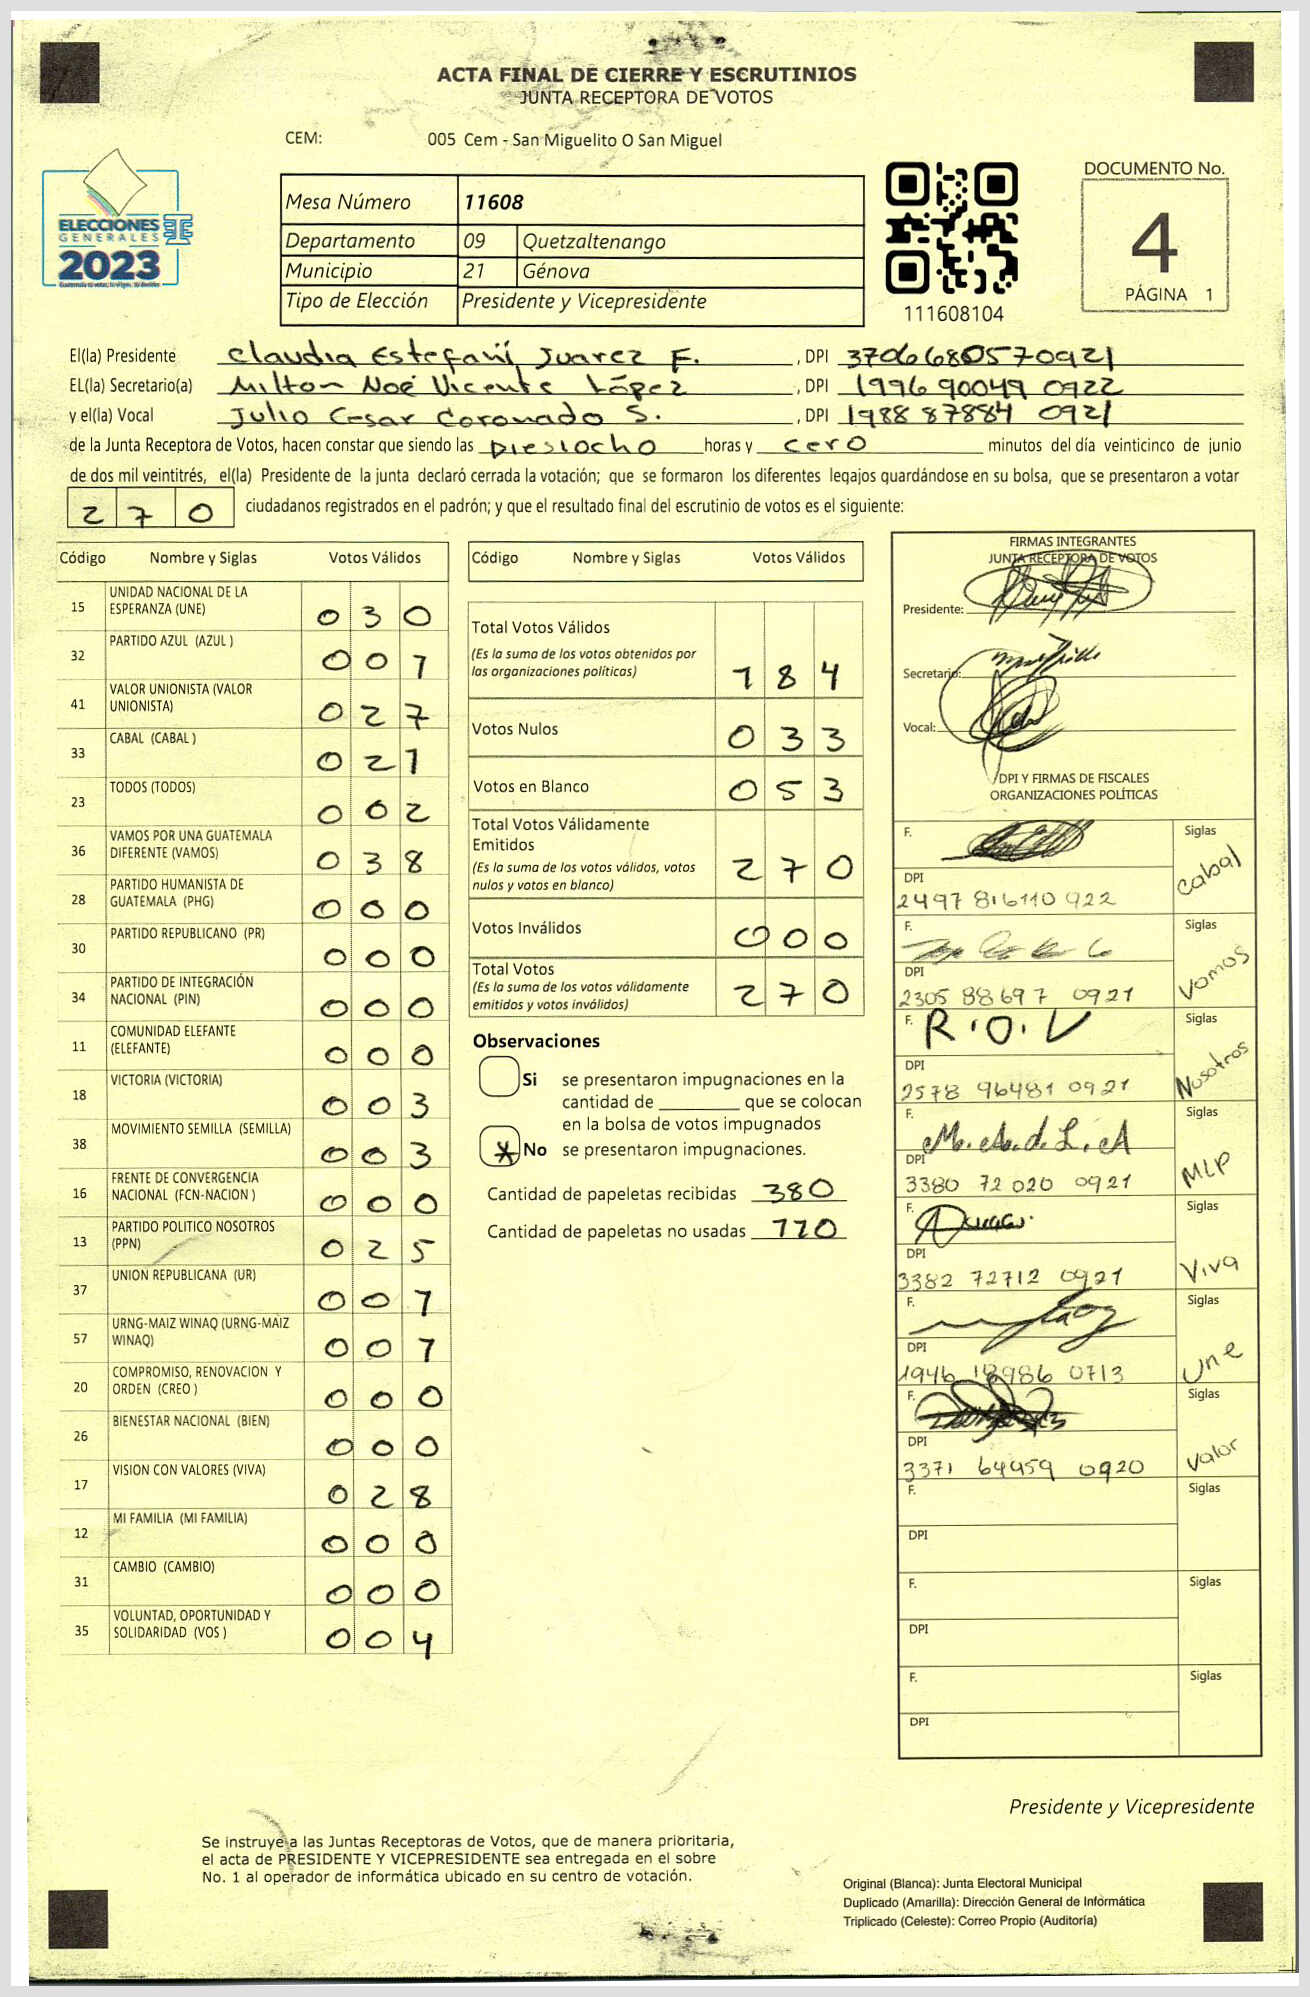 ACTA FINAL DE CIERRE Y ESCRUTINIOS
JUNTA RECEPTORA DE VOTOS
CEM: 005 Cem - San Miguelito O San Miguel
ELECCIONES
GENERALES
2023
Mesa Número 11608
Departamento 09 Quetzaltenango
Municipio 21 Génova
Tipo de Elección Presidente y Vicepresidente
111608104
DOCUMENTO No.
4
PÁGINA 1
El(la) Presidente Claudia Estefaní Juarez F. , DPI 3706680570921
EL(la) Secretario(a) Milton Noé Vicente López , DPI 1996 90049 0922
y el(la) Vocal Julio Cesar Coronado S. , DPI 1988 87884 0921
de la Junta Receptora de Votos, hacen constar que siendo las Diesiocho horas y cero minutos del día veinticinco de junio
de dos mil veintitrés, el(la) Presidente de la junta declaró cerrada la votación; que se formaron los diferentes legajos guardándose en su bolsa, que se presentaron a votar
270 ciudadanos registrados en el padrón; y que el resultado final del escrutinio de votos es el siguiente:
Código Nombre y Siglas Votos Válidos
15 UNIDAD NACIONAL DE LA
ESPERANZA (UNE) 0 3 0
32 PARTIDO AZUL (AZUL ) 0 0 1
41 VALOR UNIONISTA (VALOR
UNIONISTA) 0 2 7
33 CABAL (CABAL ) 0 2 1
23 TODOS (TODOS) 0 0 2
36 VAMOS POR UNA GUATEMALA
DIFERENTE (VAMOS) 0 3 8
28 PARTIDO HUMANISTA DE
GUATEMALA (PHG) 0 0 0
30 PARTIDO REPUBLICANO (PR) 0 0 0
34 PARTIDO DE INTEGRACIÓN
NACIONAL (PIN) 0 0 0
11 COMUNIDAD ELEFANTE
(ELEFANTE) 0 0 0
18 VICTORIA (VICTORIA) 0 0 3
38 MOVIMIENTO SEMILLA (SEMILLA) 0 0 3
16 FRENTE DE CONVERGENCIA
NACIONAL (FCN-NACION ) 0 0 0
13 PARTIDO POLITICO NOSOTROS
(PPN) 0 2 5
37 UNION REPUBLICANA (UR) 0 0 1
57 URNG-MAIZ WINAQ (URNG-MAIZ
WINAQ) 0 0 1
20 COMPROMISO, RENOVACION Y
ORDEN (CREO ) 0 0 0
26 BIENESTAR NACIONAL (BIEN) 0 0 0
17 VISION CON VALORES (VIVA) 0 2 8
12 MI FAMILIA (MI FAMILIA) 0 0 0
31 CAMBIO (CAMBIO) 0 0 0
35 VOLUNTAD, OPORTUNIDAD Y
SOLIDARIDAD (VOS ) 0 0 4
Código Nombre y Siglas Votos Válidos
Total Votos Válidos
(Es la suma de los votos obtenidos por
las organizaciones políticas) 1 8 4
Votos Nulos 0 3 3
Votos en Blanco 0 5 3
Total Votos Válidamente
Emitidos
(Es la suma de los votos válidos, votos
nulos y votos en blanco) 2 7 0
Votos Inválidos 0 0 0
Total Votos
(Es la suma de los votos válidamente
emitidos y votos inválidos) 2 7 0
Observaciones
Si se presentaron impugnaciones en la
cantidad de ________ que se colocan
en la bolsa de votos impugnados
No se presentaron impugnaciones.
Cantidad de papeletas recibidas 380
Cantidad de papeletas no usadas 110
FIRMAS INTEGRANTES
JUNTA RECEPTORA DE VOTOS
Presidente:
Secretario:
Vocal:
DPI Y FIRMAS DE FISCALES
ORGANIZACIONES POLÍTICAS
F. Siglas
Cabal
DPI
2497 816110 922
F. Siglas
Vamos
DPI
2305 88697 0921
F. R.O.V Siglas
Nosotros
DPI
2578 96481 0921
F. M.A.d.L.A Siglas
MLP
DPI
3380 72 020 0921
F. Siglas
Viva
DPI
3382 72712 0921
F. Siglas
Une
DPI
1946 18986 0713
F. Siglas
Valor
DPI
3371 64959 0920
F. Siglas
DPI
F. Siglas
DPI
F. Siglas
DPI
Presidente y Vicepresidente
Se instruye a las Juntas Receptoras de Votos, que de manera prioritaria,
el acta de PRESIDENTE Y VICEPRESIDENTE sea entregada en el sobre
No. 1 al operador de informática ubicado en su centro de votación.
Original (Blanca): Junta Electoral Municipal
Duplicado (Amarilla): Dirección General de Informática
Triplicado (Celeste): Correo Propio (Auditoría)